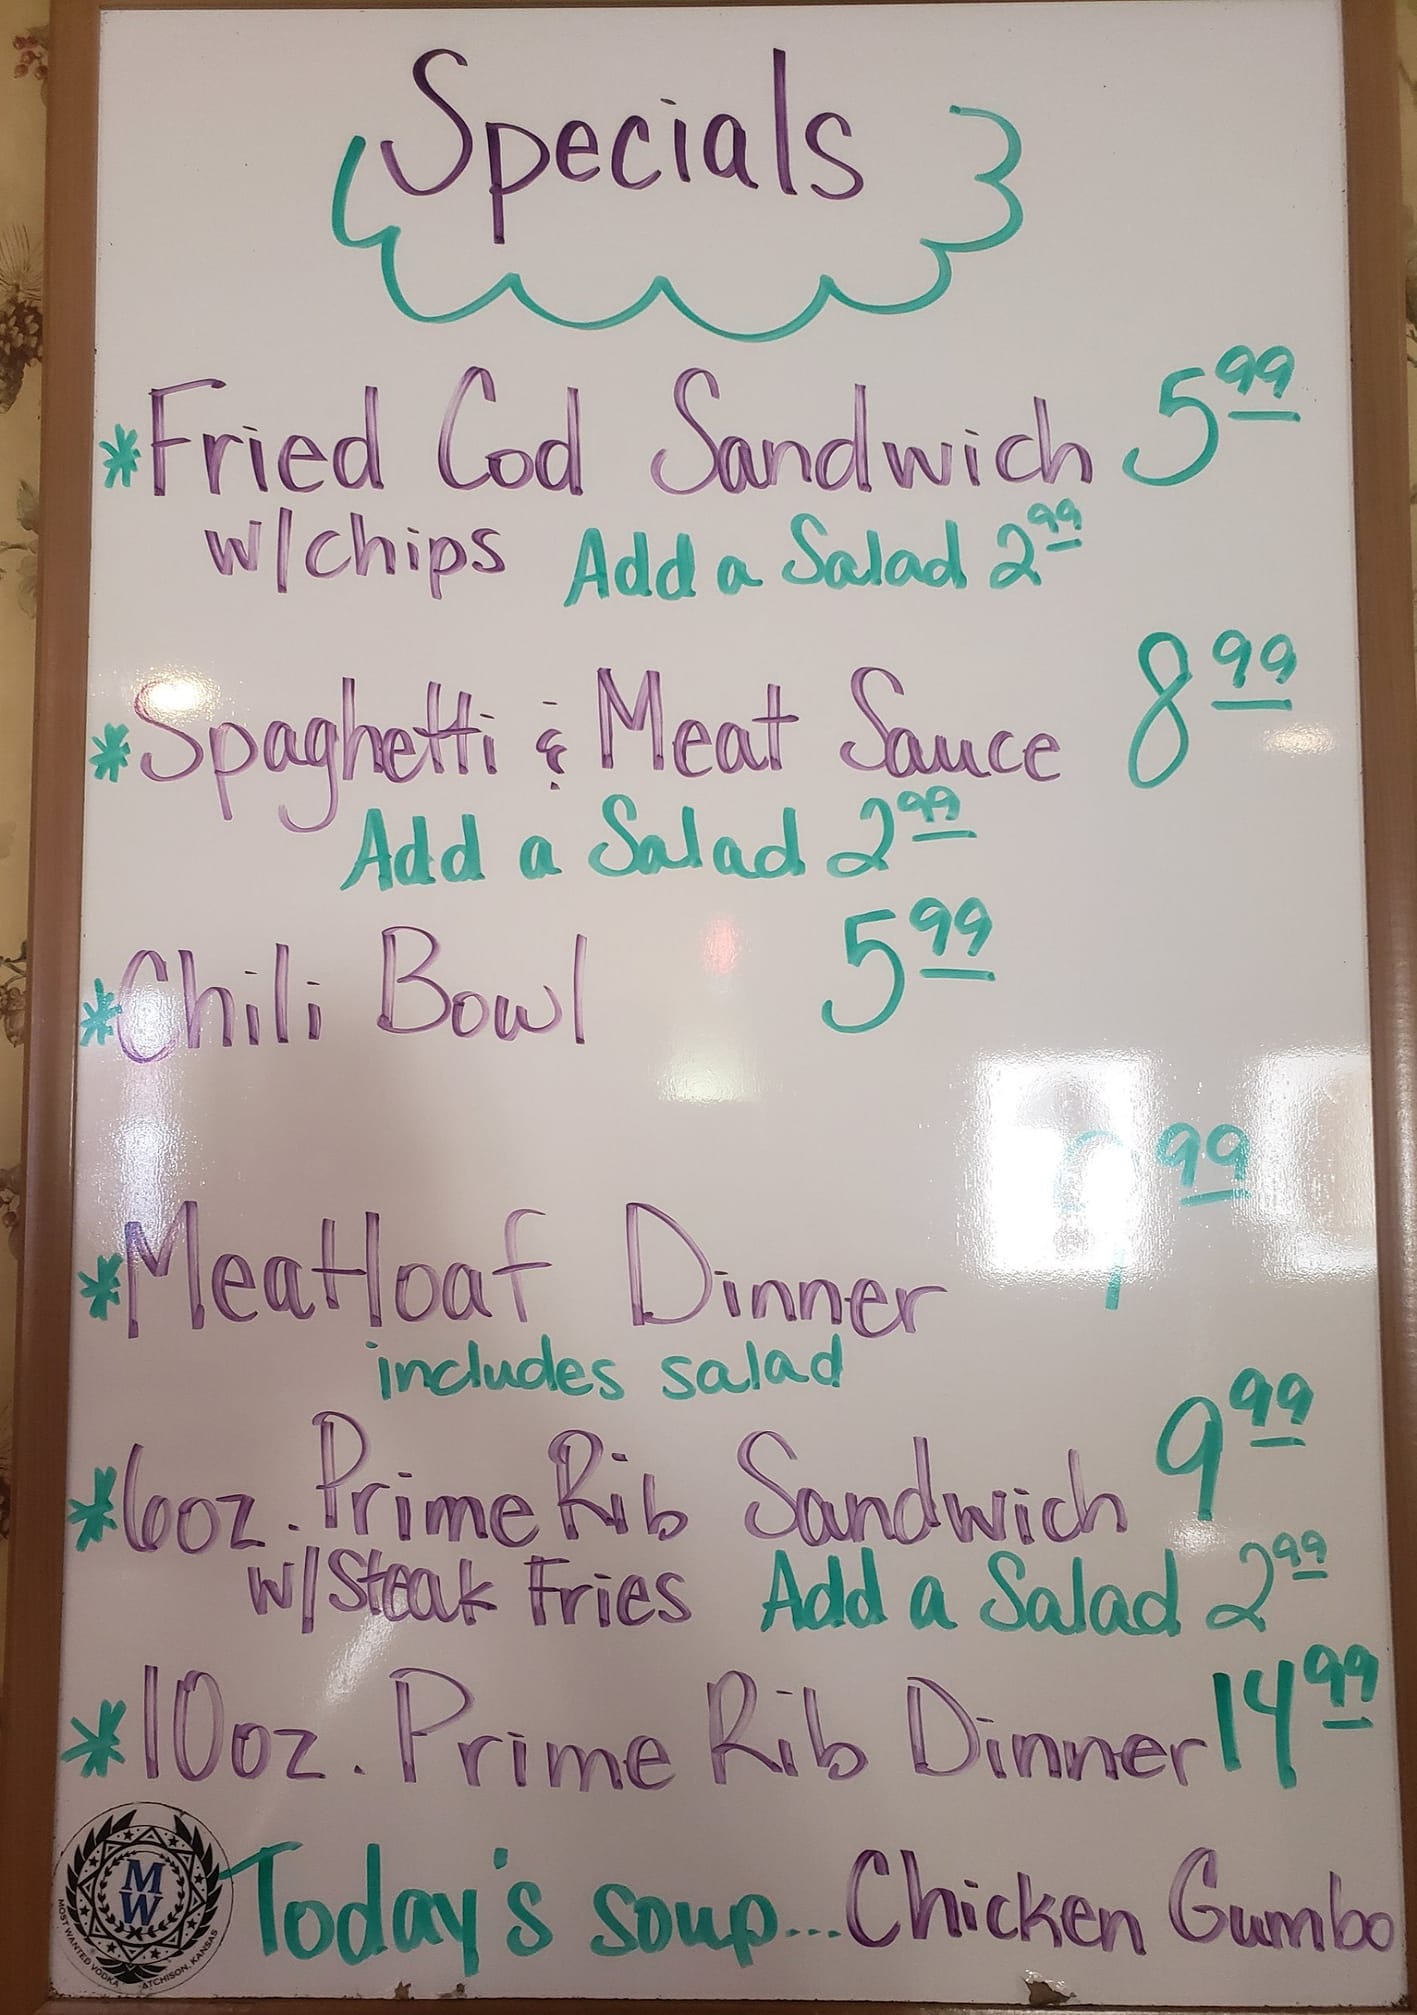 Specials
*Fried Cod Sandwich 5.99
w/chips Add a Salad 2.99
*Spaghetti & Meat Sauce 8.99
Add a Salad 2.99
*Chili Bowl 5.99
*Meatloaf Dinner 9.99
includes salad
*6oz. Prime Rib Sandwich 9.99
w/Steak Fries Add a Salad 2.99
*10oz. Prime Rib Dinner 14.99
Today's soup...Chicken Gumbo
MW
MOST WANTED VODKA
ATCHISON, KANSAS